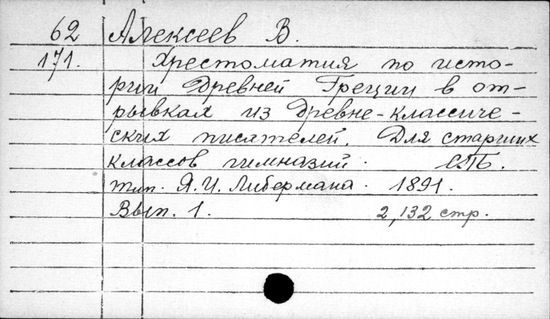 62 Алексеев В.
171. Хрестоматия по исто-
рии Древней Греции в от-
рывках из древне-классиче-
ских писателей. Для старших
классов гимназий. СПБ.
тип. Я.И. Либермана. 1891.
Вып. 1. 2,132 стр.